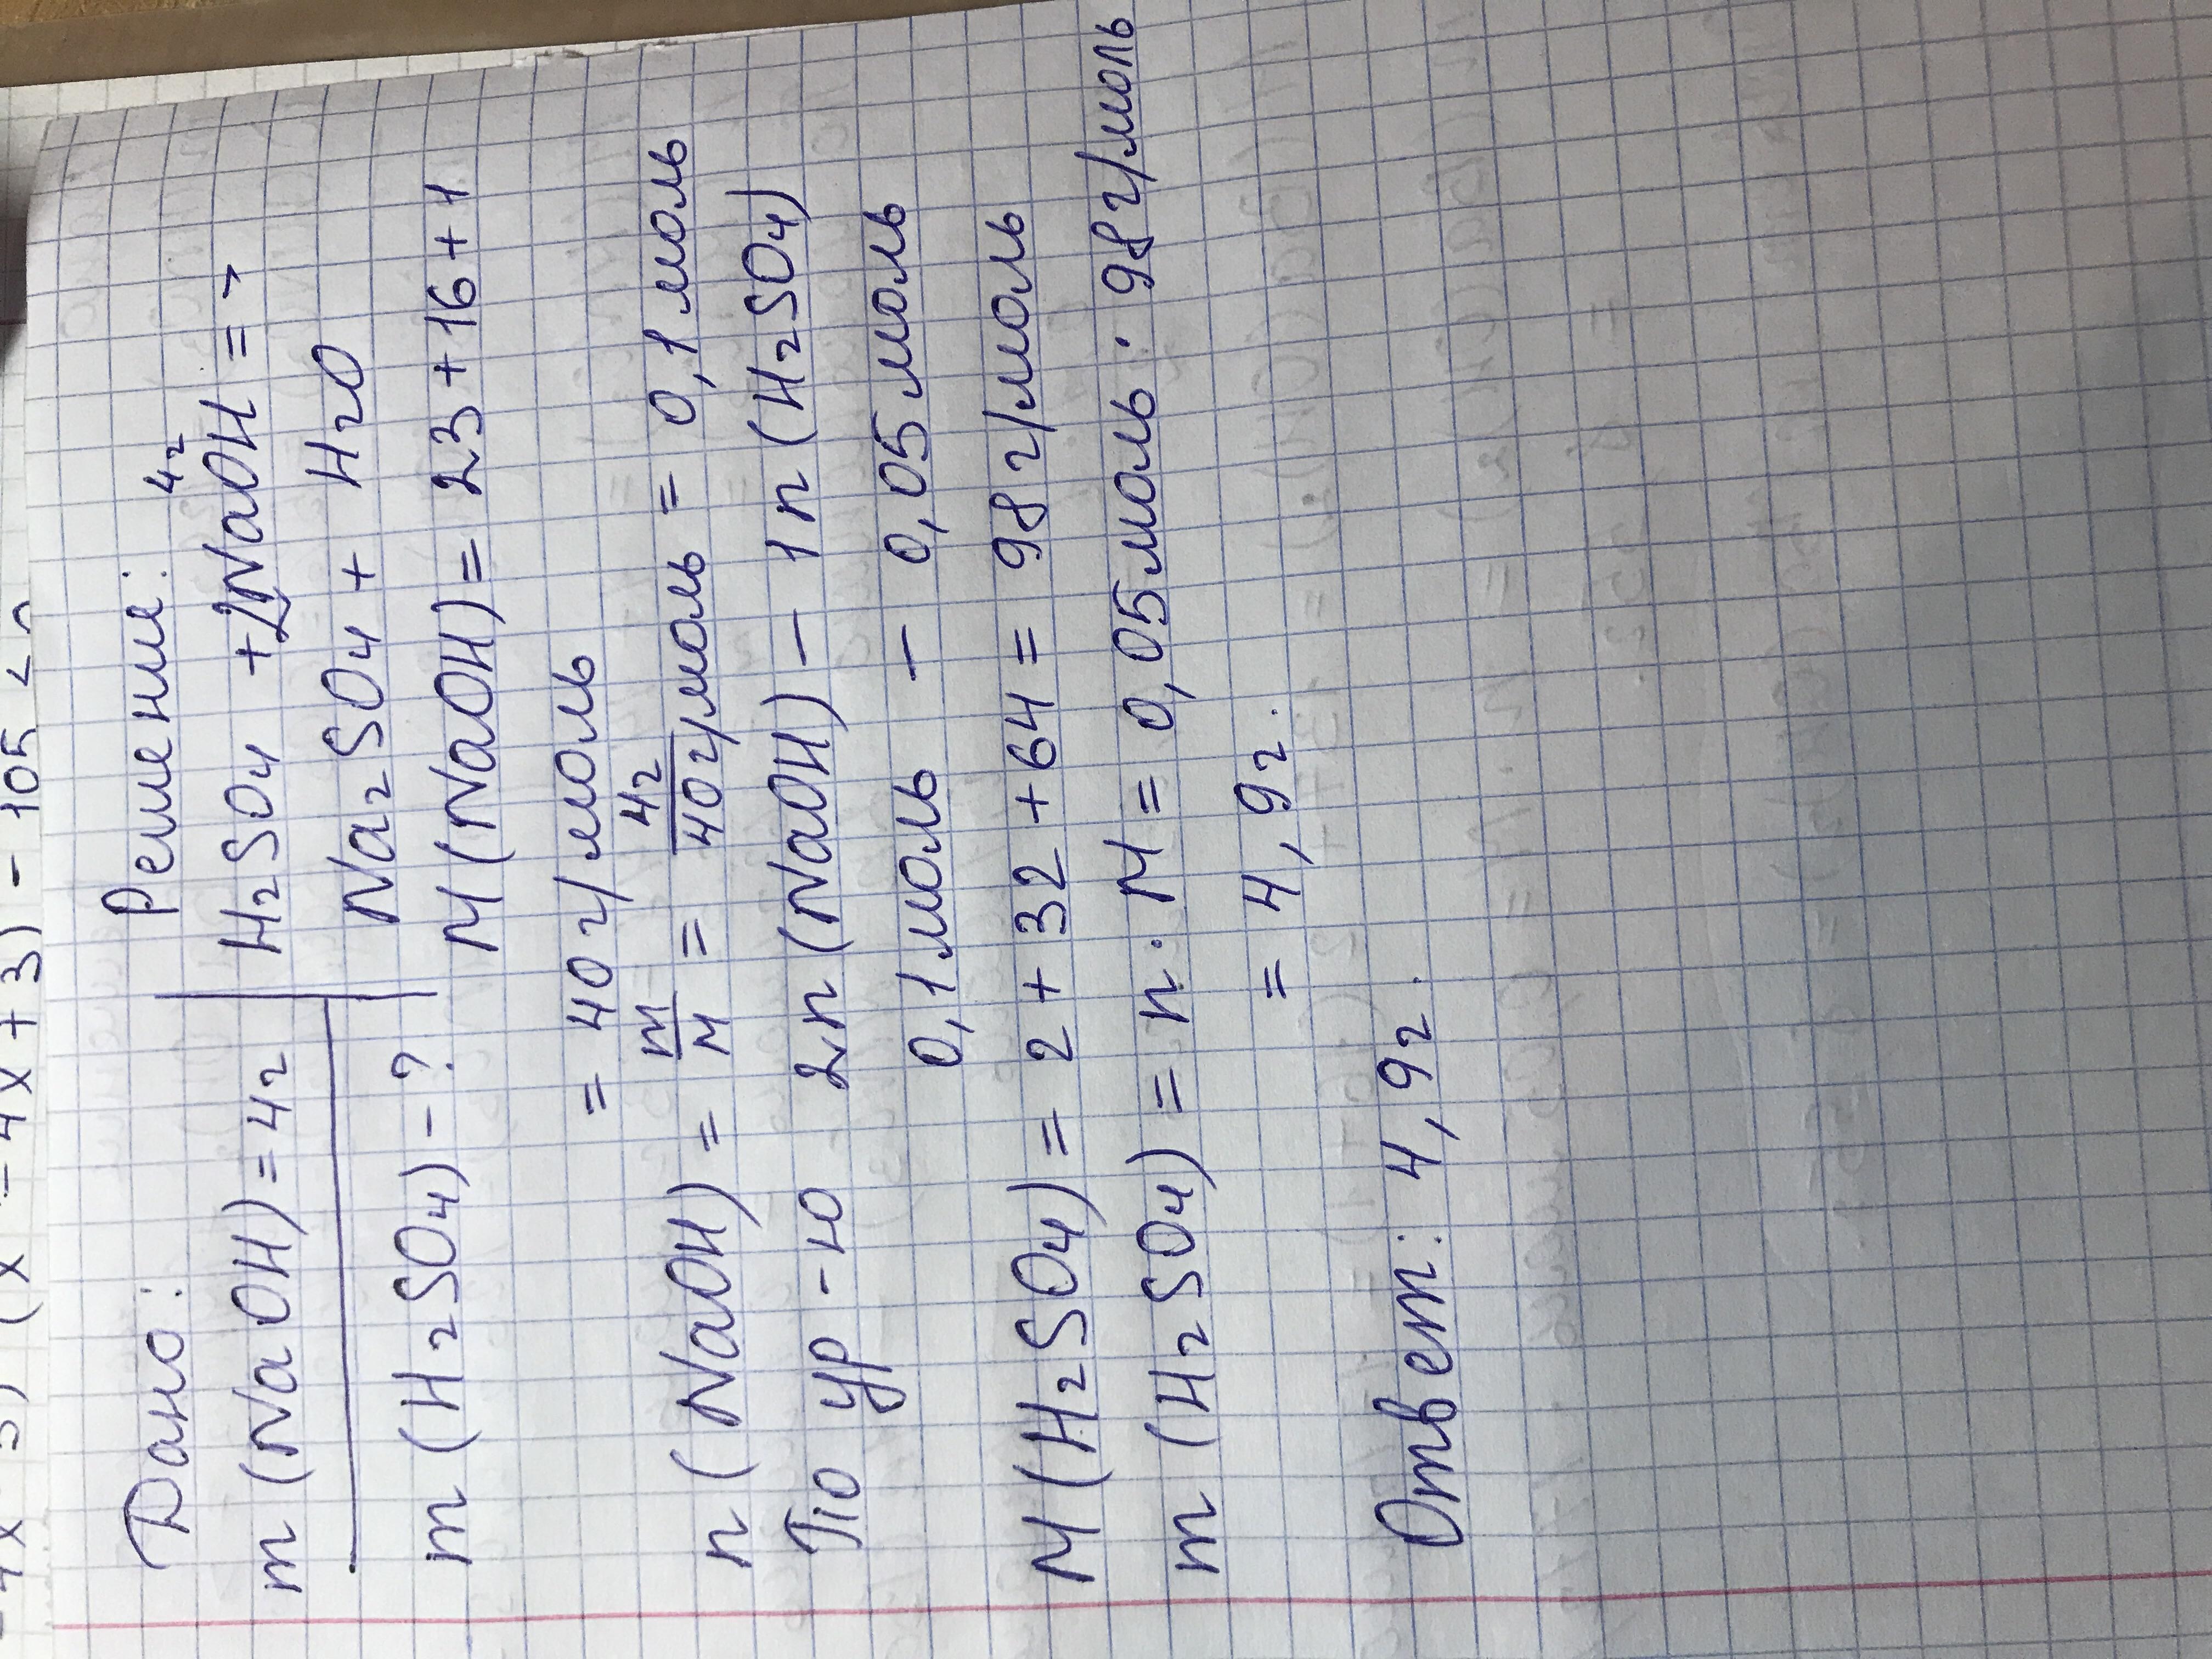 (x² - 4x + 3) - 105 <
Дано:
Решение:
m(NaOH)=4г
m(H₂SO₄)-?
4г
H₂SO₄ + 2NaOH =>
Na₂SO₄ + H₂O
M(NaOH)= 23+16+1
= 40 г/моль
n(NaOH) = m/M = 4г/40г/моль = 0,1 моль
По ур-ю 2n(NaOH) - 1n(H₂SO₄)
0,1 моль - 0,05 моль
M(H₂SO₄) = 2+32+64 = 98 г/моль
m(H₂SO₄) = n·M = 0,05моль·98г/моль
= 4,9г.
Ответ: 4,9г.